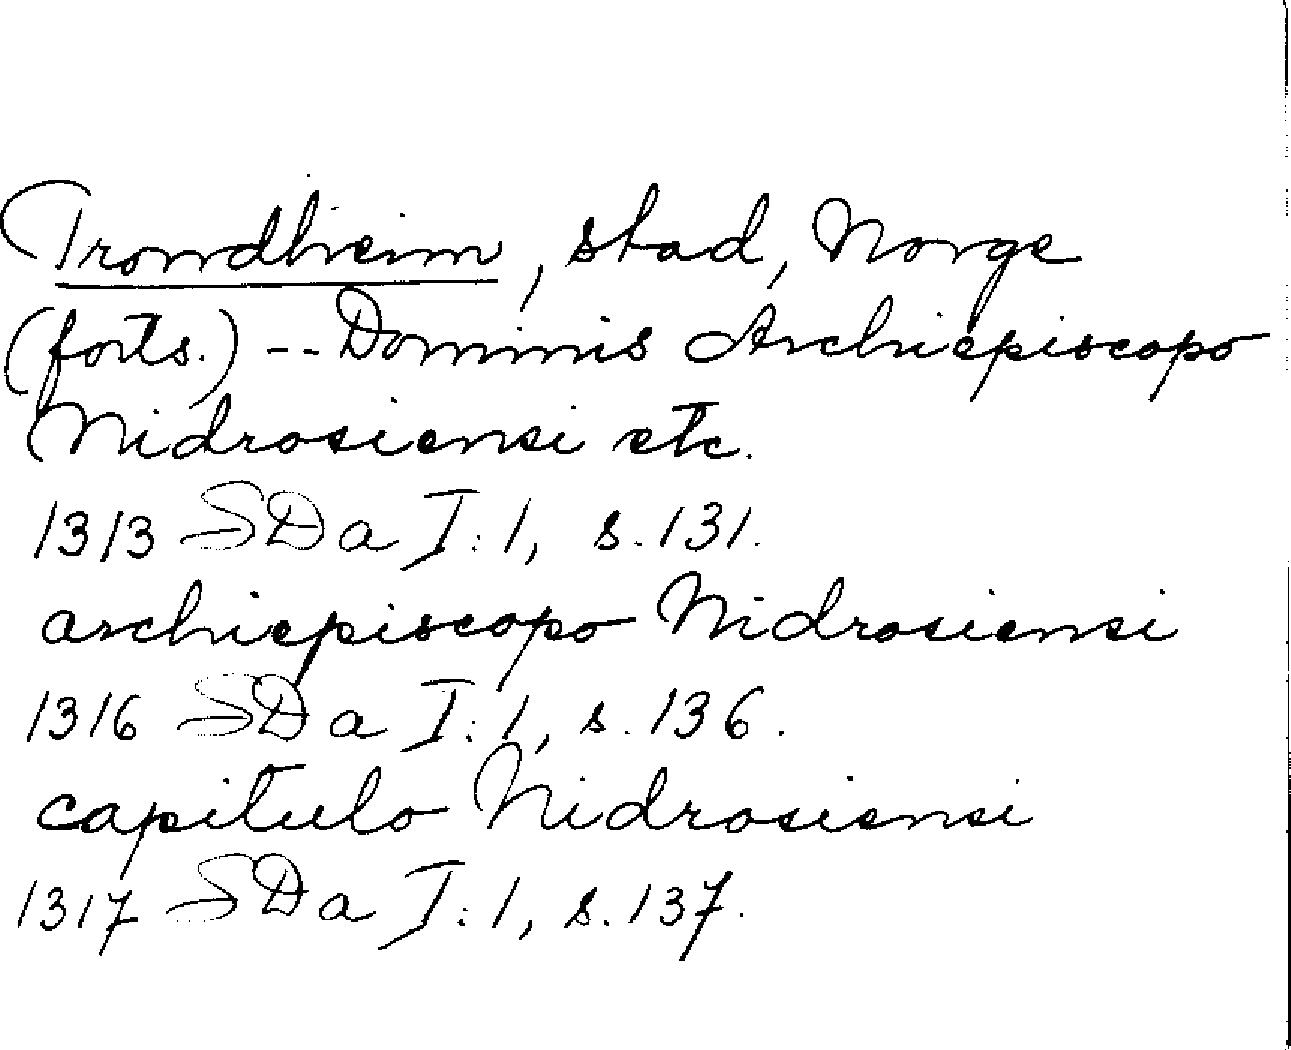 Trondheim, stad, Norge
(forts.) -- Dominis Archiepiscopo
Nidrosiensi etc.
1313 SDa I:1, s. 131.
archiepiscopo Nidrosiensi
1316 SDa I:1, s. 136.
capitulo Nidrosiensi
1317 SDa I:1, s. 137.